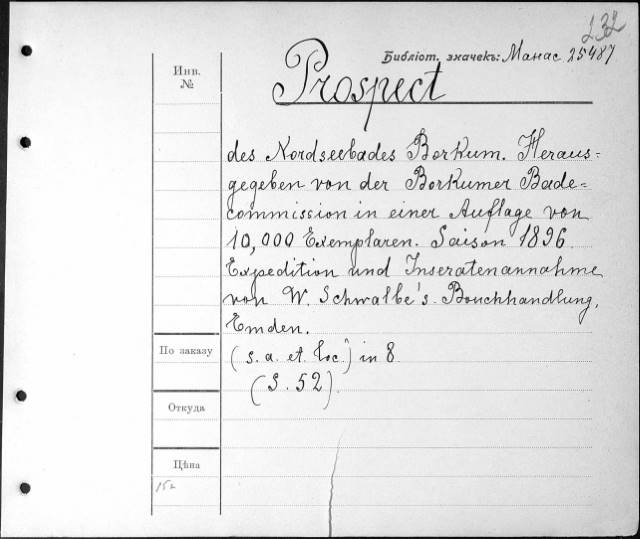 232
Библіот. значекъ: Манас 25487
Инв.
№
Prospect
des Nordseebades Borkum. Heraus=
gegeben von der Borkumer Bade=
commission in einer Auflage von
10,000 Exemplaren. Saison 1896.
Expedition und Inseratenannahme
von W. Schwalbe's Bouchhandlung,
Emden.
По заказу
(s. a. et. loc.) in 8.
(S. 52).
Откуда
Цѣна